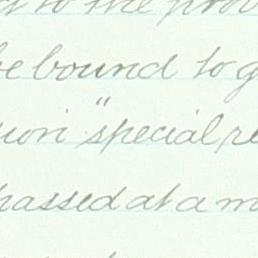 to the prov
be bound to g
ion "special re
passed at a m